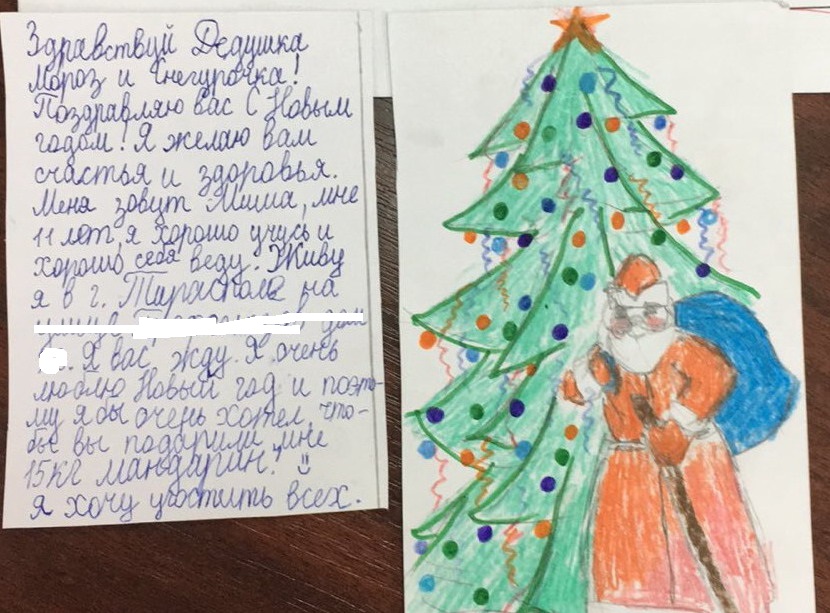 Здравствуй Дедушка
Мороз и Снегурочка!
Поздравляю вас с Новым
годом! Я желаю вам
счастья и здоровья.
Меня зовут Миша, мне
11 лет, я хорошо учусь и
хорошо себя веду. Живу
я в г. Тирасполе на
дом
. Я вас жду. Я очень
люблю Новый год и поэто-
му я бы очень хотел, что-
бы вы подарили мне
15 кг мандарин!
Я хочу угостить всех.